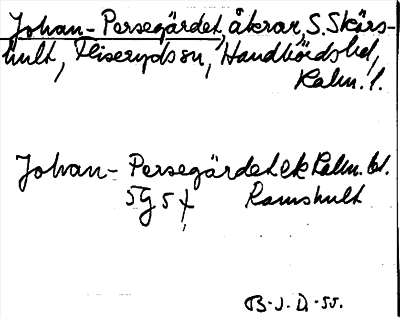 Johan-Persegärdet, åkrar, S. Skörs-
hult, Fliseryds sn, Handbörds hd,
Kalm. l.
Johan- Persegärdet ek Kalm. bl.
5G5f Ramshult
B.J.D.-55.